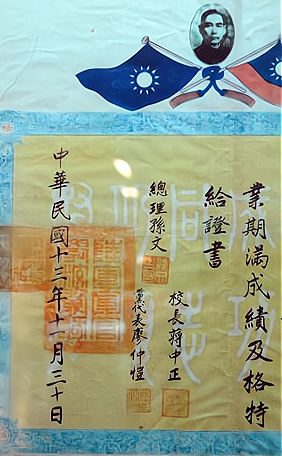 業期滿成績及格特
給證書
總理孫文
校長蔣中正
黨代表廖仲愷
中華民國十三年十一月三十日